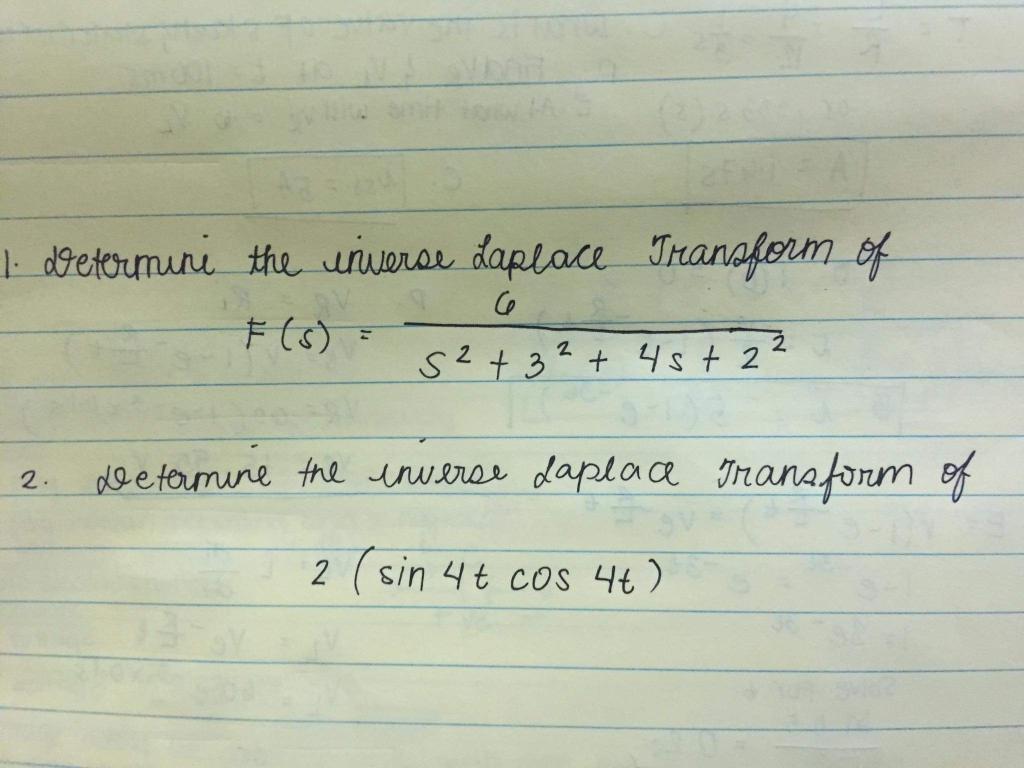 1. Determine the inverse Laplace Transform of
F(s) = 6 / (s² + 3² + 4s + 2²)
2. Determine the inverse Laplace Transform of
2 (sin 4t cos 4t)